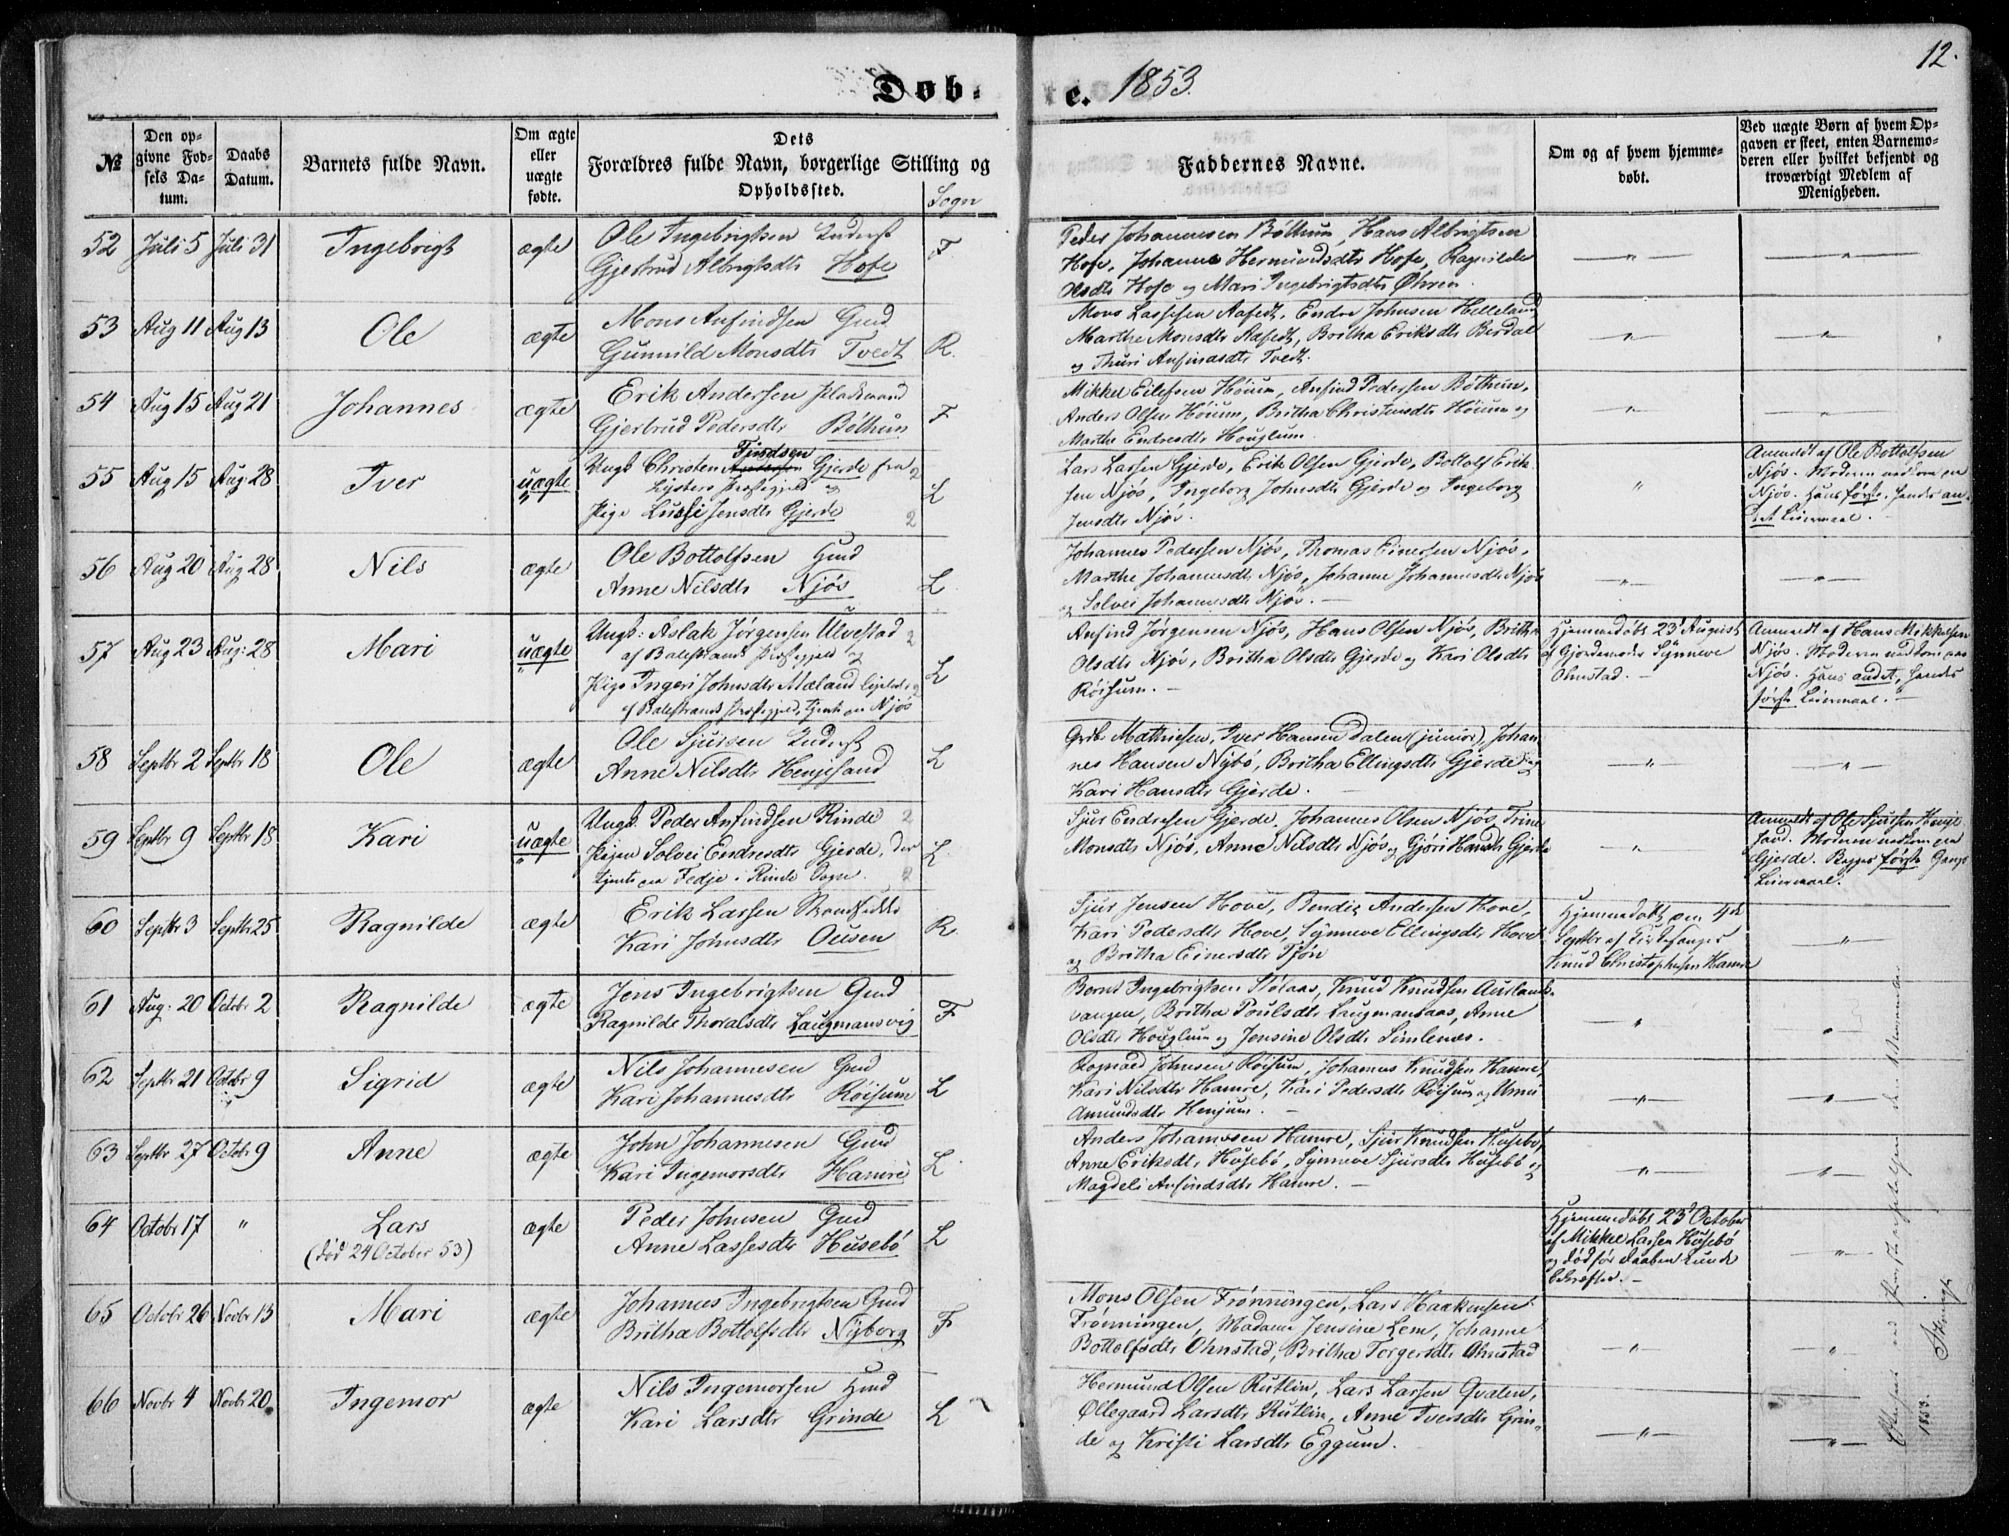 12.
Døb- e. 1853.
№
Den opgivne Fødsels Datum.
Daabs Datum.
Barnets fulde Navn.
Om ægte eller uægte fødte.
Dets Forældres fulde Navn, borgerlige Stilling og Opholdssted.
Sogn
Faddernes Navne.
Om og af hvem hjemmedøbt.
Ved uægte Børn af hvem Opgaven er skeet, enten Barnemoderen eller hvilket bekjendt og troværdigt Medlem af Menigheden.
52 Juli 5 Juli 31 Ingebrigt ægte
Ole Ingebrigtsen Inderst
Gjertrud Albrigtsdtr Hofe F.
Peder Johannesen Bøthun, Hans Albrigtsen
Hofe, Johanne Hermundsdtr Hofe, Ragnilde
Olsdtr Hofe og Mari Ingebrigtsdtr Øhren.
53 Aug 11 Aug 13 Ole ægte
Mons Anfindsen Gmd
Gunnild Monsdtr Tvedt R.
Mons Lassesen Aafedt, Endre Johnsen Helleland
Marthe Monsdtr Aafedt, Britha Eriksdtr Berdal
og Thuri Anfindsdtr Tvedt.
54 Aug 15 Aug 21 Johannes ægte
Erik Andersen Pladsmand
Gjertrud Pedersdtr Bøthun F
Mikkel Eilefsen Høium, Anfind Pedersen Bøthun,
Anders Olsen Høium, Britha Christensdtr Høium og
Marthe Endresdtr Houglum.
55 Aug 15 Aug: 28 Iver uægte
Ungk Christen Andersen Findsen Gjerde fra 2
Lysters Præstegjeld og
Pige Lussi Jensdtr Gjerde 2 L
Lars Larsen Gjerde, Erik Olsen Gjerde, Bottolf Erik-
sen Njøs, Ingeborg Johnsdtr Gjerde og Ingeborg
Jensdtr Njøs.
Anmeldt af Ole Bottolfsen
Njøs. Moderen nedkom paa
Njøs. Hans første, hendes an-
det Leiermaal.
56 Aug 20 Aug 28 Nils ægte
Ole Bottolfsen Gmd
Anne Nilsdtr Njøs L.
Johannes Pedersen Njøs, Thomas Einersen Njøs,
Marthe Johannesdtr Njøs, Johanne Johannesdtr Njøs
og Solvei Johannesdtr Njøs.
57 Aug 23 Aug: 28 Mari uægte
Ungk: Aslak Jørgensen Ulvestad 2
af Balestrands Præstegjeld og
Pige Ingeri Johnsdtr Mæland ligeledes 2
af Balestrands Præstegjeld, tjente paa Njøs L
Anfind Jørgensen Njøs, Hans Olsen Njøs, Britha
Olsdtr Njøs, Britha Olsdtr Gjerde og Kari Olsdtr
Røisum.
Hjemmedøbt 23 August
af Gjordemoder Synneve
Ohnstad.
Anmeldt af Hans Mikkelsen
Njøs. Moderen nedkom paa
Njøs. Hans andet, hendes
første Leiermaal.
58 Septbr 2 Septbr 18 Ole ægte
Ole Sjursen Inderst
Anne Nilsdtr Henjesand L
Mathiesen, Iver Hansen Dalen (junior), Johan-
nes Hansen Nybø, Britha Ellingsdtr Gjerde og
Kari Hansdtr Gjerde.
59 Septbr 9 Septbr 18 Kari uægte
Ungk. Peder Anfindsen Rinde 2
Pigen Solvei Endresdtr Gjerde, der
tjente paa Fedje i Rinde Sogn. 2 L.
Sjur Endresen Gjerde, Johannes Olsen Njøs, Trine
Monsdtr Njøs, Anne Nilsdtr Njøs og Gjøri Hansdtr Gjerde
Anmeldt af Ole Sjursen Henje-
sand. Moderen nedkom paa
Gjerde. Begges første Gangs
Leiermaal.
60 Septbr 3 Septbr 25 Ragnilde ægte
Erik Larsen
Kari Johnsdtr Ousen R.
Sjur Jensen Hove, Bendix Andersen Hove,
Kari Pedersdtr Hove, Synneve Ellingsdtr Hove
og Britha Einersdtr Tjøn
Hjemmedøbt den 4de
Septbr af Kirkesanger
Knud Christophersen Hamre
61 Aug: 20 Octobr 2 Ragnilde ægte
Jens Ingebrigtsen Gmd
Ragnilde Thoralsdtr Laugmansvig F
Bernt Ingebrigtsen Stølaas, Knud Knudsen Aurlands-
vangen, Britha Poulsdtr Laugmansaas, Anne
Olsdtr Houglum og Jensine Olsdtr Simlenes.
62 Septbr 21 Octobr 9 Sigrid ægte
Nils Johannesen Gmd
Kari Johannesdtr Røisum L
Rognald Johnsen Røisum, Johannes Knudsen Hamre
Kari Nilsdtr Hamre, Kari Pedersdtr Røisum og Unni
Amundsdtr Henjum.
63 Septbr 27 Octobr 9 Anne ægte
John Johannesen Gmd
Kari Ingemorsdtr Hamre L.
Anders Johannesen Hamre, Sjur Knudsen Husebø,
Anne Eriksdtr Husebø, Synneve Sjursdtr Husebø og
Magdeli Anfindsdtr Hamre.
64 Octobr 17 " Lars
(død 24 October 53) ægte
Peder Johnsen Gmd
Anne Lassesdtr Husebø L
Hjemmedøbt 23 October
af Mikkel Larsen Husebø
og død før Daaben kunde
bekræftes.
65 Octobr 26 Novbr 13 Mari ægte
Johannes Ingebrigtsen Gmd
Britha Bottolfsdtr Nyborg F
Mons Olsen Frønningen, Lars Haakensen
Frønningen, Madame Jensine Lem, Johanne
Bottolfsdtr Ohnstad, Britha Torgersdtr Ohnstad
66 Novbr 4 Novbr 20 Ingemor ægte
Nils Ingemorsen Gmd
Kari Larsdtr Grinde L
Hermund Olsen Rutlin, Lars Larsen Qvalen,
Øllegaard Larsdtr Rutlin, Anne Iversdtr Grin-
de og Kristi Larsdtr Eggum.
Efterseet ved den
1853.